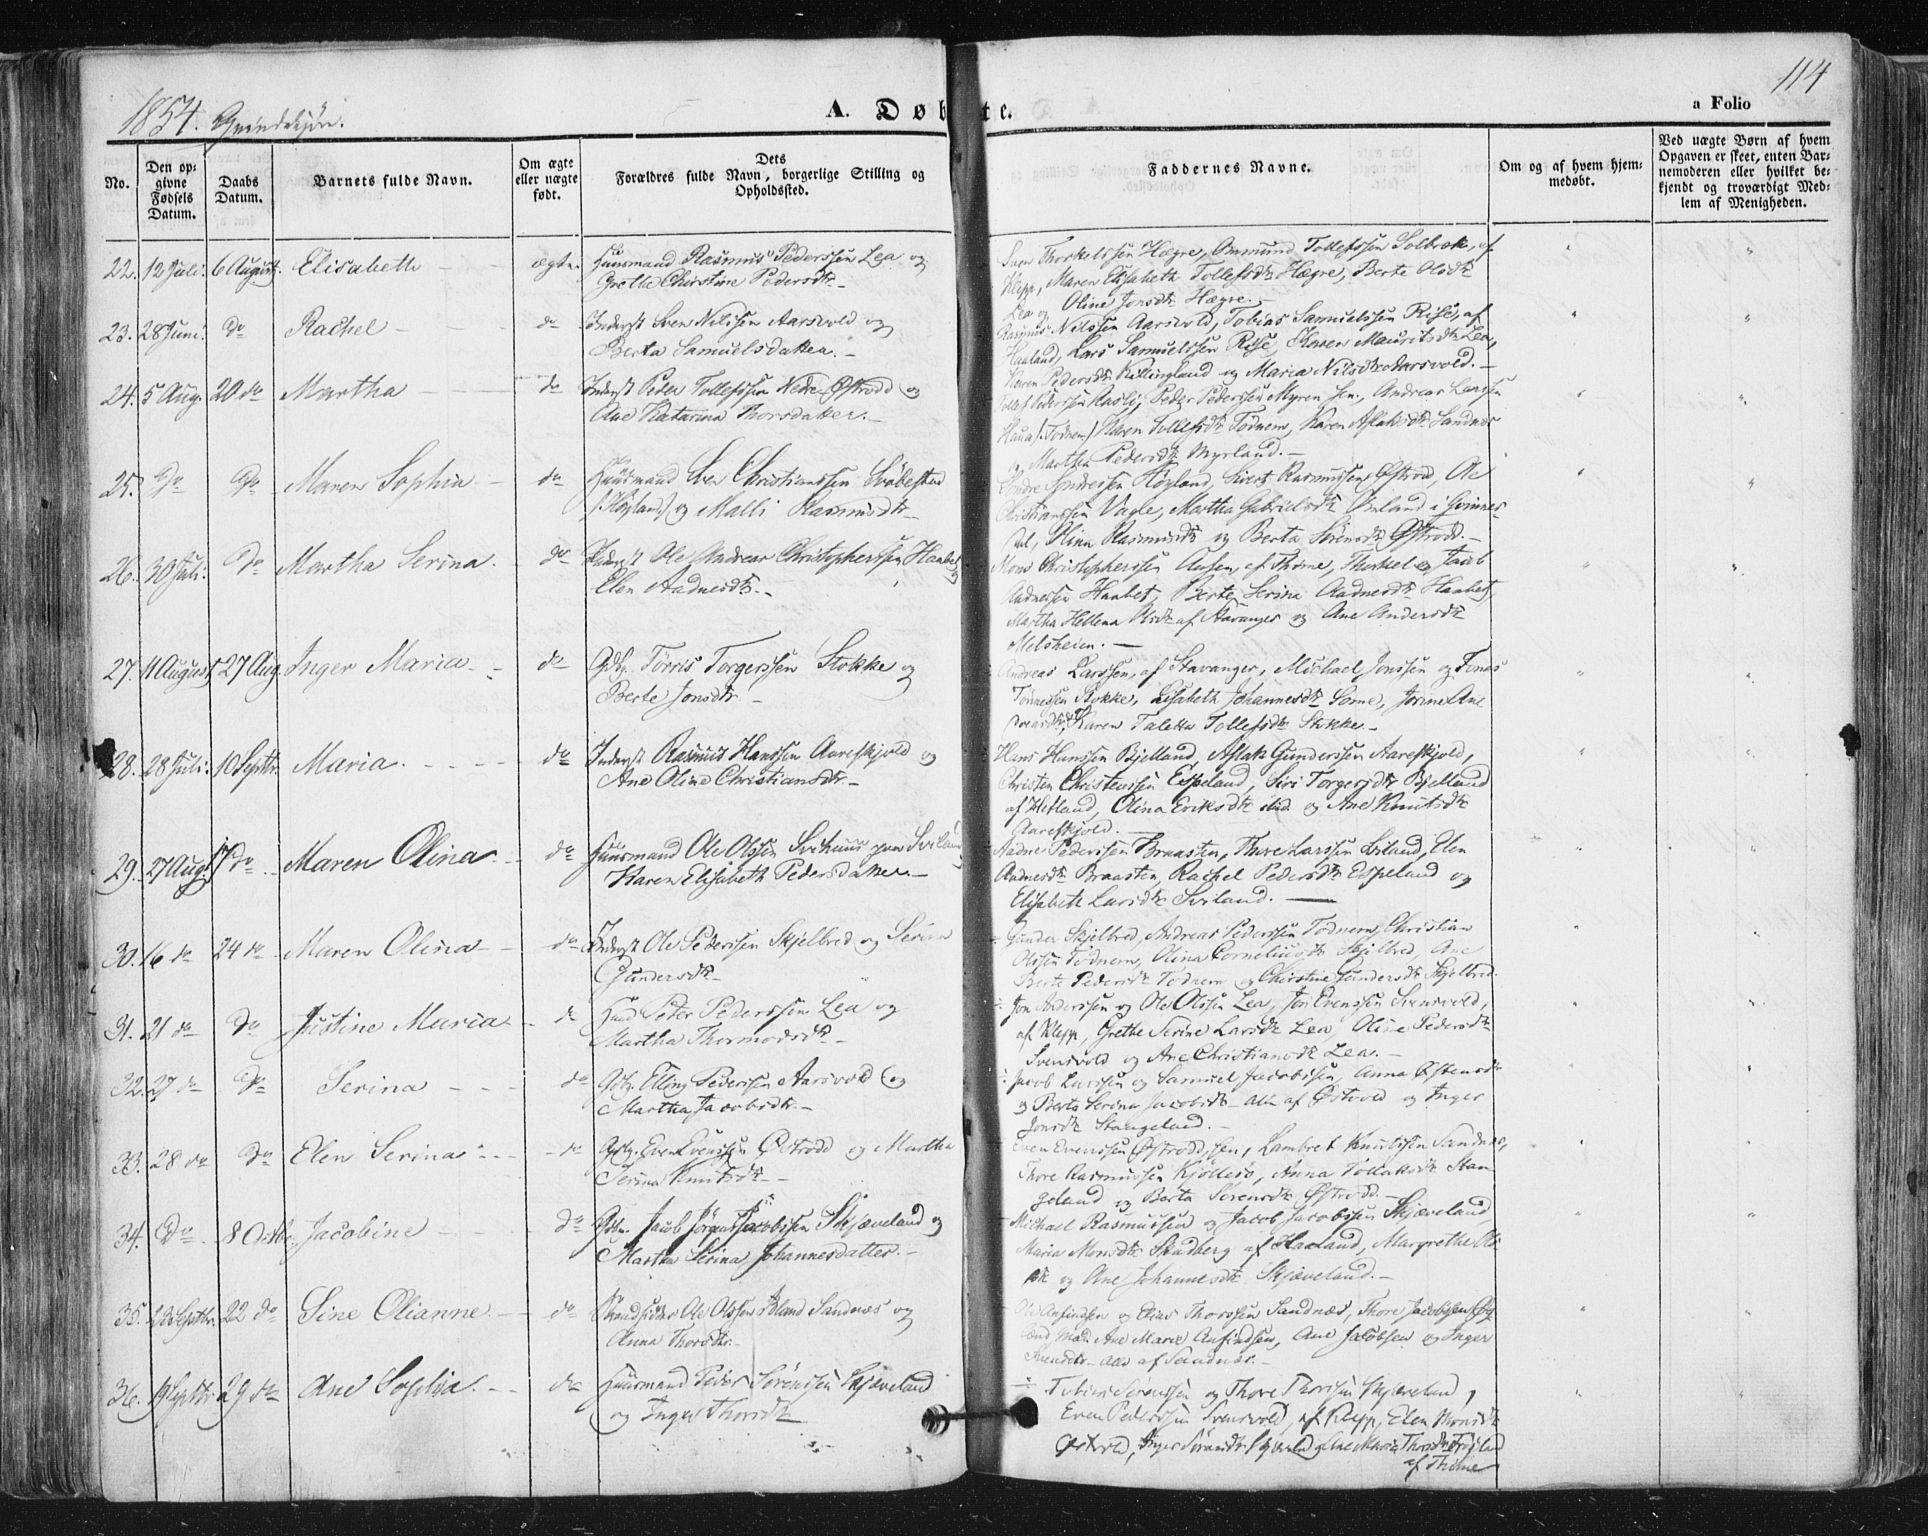 1854. Qvindekjøn.
A. Døbte.
a Folio 114
No.
Den opgivne Fødsels Datum.
Daabs Datum.
Barnets fulde Navn.
Om ægte eller uægte født.
Dets Forældres fulde Navn, borgerlige Stilling og Opholdssted.
Faddernes Navne.
Om og af hvem hjemmedøbt.
Ved uægte Børn af hvem Opgaven er skeet, enten Barnemoderen eller hvilket bekjendt og troværdigt Medlem af Menigheden.
22. 12 Juli. 6 August. Elisabeth ægte. Huusmand Rasmus Pederssen Lea og
Grethe Christine Pedersdtr
Sven Thorkelssen Høgre, Ommund Tollefssen Solbrek, af
Klepp, Maren Elisabeth Tollefsdtr Høgre, Berte Olsdtr
Lea og Oline Jonsdtr Høgre.
23. 28 Juni. do Rachel do Inderst Sven Nilssen Aarsvold og
Berta Samuelsdatter.
Rasmus Nilssen Aarsvold, Tobias Samuelssen Rise, af
Haaland, Lars Samuelssen Rise, Karen Mauritsdtr Lea,
Karen Pedersdtr Killingland og Maria Nilsdtr Aarsvold.
24. 5 Aug. 20 do Martha do Inderst Peder Tollefssen Nedre Østrod og
Ane Katarina Thorsdatter.
Tollef Pederssen Rasli, Peder Pederssen Myren sen., Andreas Larssen
Haua /:Todnem/ Karen Tollefsdtr Todnem, Karen Aslaksdtr Sandnæs
og Martha Pedersdtr Myrland.
25. Do Do Maren Sophia do Huusmand Sven Christianssen Svøbestad
/:Høyland:/ og Malli Rasmusdtr
Sondre Syndresen Høyland, Sivert Rasmussen Østrod, Ole
Christianssen Vagle, Martha Gabrielsdtr Ømland i Qvinnesdal,
Stina Rasmusdtr og Berta Sørensdtr Østrod.
26. 30 Juli. Do Martha Serina. do Inderst Ole Andreas Christopherssen Haabet og
Elen Aadnesdtr.
Mons Christopherssen Ausen, af Thime, Thorkel og Jacob
Aadnessen Haabet, Berte Serina Aadnesdtr Haabet,
Martha Hellena Olsdtr af Stavanger og Ane Andersdtr
Melsheien.
27. 11 August 27 Aug. Inger Maria do Gdbr. Tørris Torgerssen Stokke og
Berte Jonsdtr
Andreas Larssen, af Stavanger, Michael Jonssen og Jonas
Tønnessen Stokke, Elisabeth Johannesdtr Some, Jorine Ane
Karen Taletta Tollefsdtr Stokke.
28. 28 Juli. 10 Septbr. Maria. do Inderst Rasmus Hanssen Aareskjold og
Ane Oline Christiansdtr.
Hans Hanssen Bjelland, Aslak Gunderssen Aareskjold,
Christen Christenssen Espeland, Siri Torgersdtr Bjelland
af Hetland, Olina Eriksdtr ibid. og Ane Knutsdtr
Aareskjold.
29. 27 Aug. 17 do Maren Olina. do Huusmand Ole Olssen Svihuus paa Sviland
Karen Elisabeth Pedersdatter.
Aadne Pederssen Braasten, Thore Larssen Liland, Elen
Aadnesdtr Braasten, Rachel Pedersdtr Espeland og
Elisabeth Larsdtr Sviland.
30. 16 do 24 do Maren Olina do Inderst Ole Pederssen Skjelbred og Serina
Gundersdtr
Gunder Skjelbred, Andreas Pederssen Todnem, Christian
Olssen Todnem, Olina Corneliusdtr Skjelbred, Ane
Berte Pedersdtr Todnem og Christine Gundersdtr Skjelbred.
31. 21 do Do Justine Maria do Huusmd Peder Pederssen Lea og
Martha Thormodsdtr
Jon Anderssen og Ole Olssen Lea, Jon Evenssen Svensvold,
af Klepp, Grethe Serine Larsdtr Lea, Oline Pedersdtr
Svensvold og Ane Christiansdtr Lea.
32. 27 do Do Serina do Gdbr. Elling Pederssen Aarsvold og
Martha Jacobsdtr.
Jacob Larssen og Samuel Jacobssen, Anna Østensdtr
og Berta Serina Jacobsdtr alle af Østvold og Inger
Jonsdtr Stangeland.
33. 28 do Do Elen Serina do Gdbr. Even Evenssen Østrodd og Martha
Serina Knutsdtr
Even Evenssen Østrodd, sen, Lambret Knutssen Sandnæs,
Thore Rasmussen Kjøllesø, Anna Tollaksdtr Stangeland
og Berta Sørensdtr Østrodd.
34. Do 8 Octbr. Jacobine do Gdbr. Jacob Jørgen Jacobssen Skjæveland og
Martha Serina Johannesdatter.
Michael Rasmussen og Jacob Jacobssen Skjæveland,
Maria Monsdtr Skadberg af Haaland, Margrethe Olsdtr
og Ane Johannesdtr Skjæveland.
35. 23 Septbr. 22 do Sine Olianne. do Strandsidder Ole Olssen Ydland Sandnæs og
Anna Thorsdtr.
Ole Anfindsen og Elias Thorssen Sandnæs, Thore Jacobssen
Mad. Ane Marie Anfindsen, Ane Jacobsen og Inger
Svendsdtr alle af Sandnæs.
36. 19 Septbr 29 do Ane Sophia. do Huusmand Peder Sørenssen Skjæveland
og Inger Thorsdtr
Tobias Sørenssen og Thore Thorssen Skjæveland,
Even Pederssen Svensvold, af Klepp, Elen Monsdtr
Østvold, Inger Ane Maria Thorsdtr
af Thime